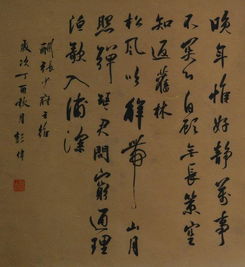 晚年惟好静萬事
不關心自顧無長策空
知返舊林
松風吹解帶山月
照彈琴君問窮通理
漁歌入浦深
酬張少府王維
歲次丁酉秋月彭偉